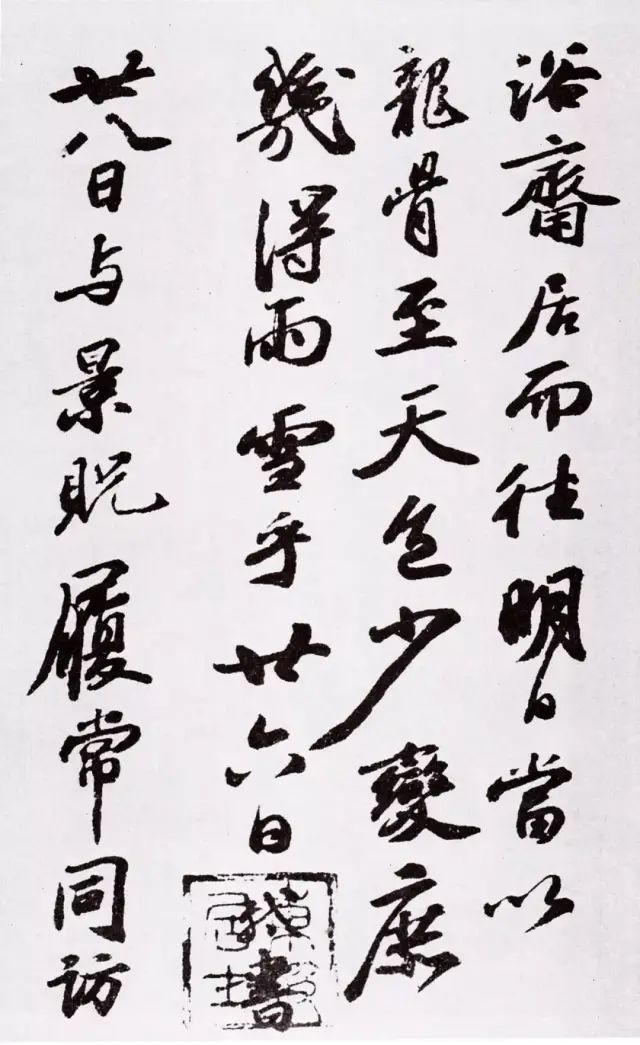 浴齋居而往明日當以
龍骨至天色少變庶
幾得雨雪乎廿六日書
廿八日与景貺履常同訪